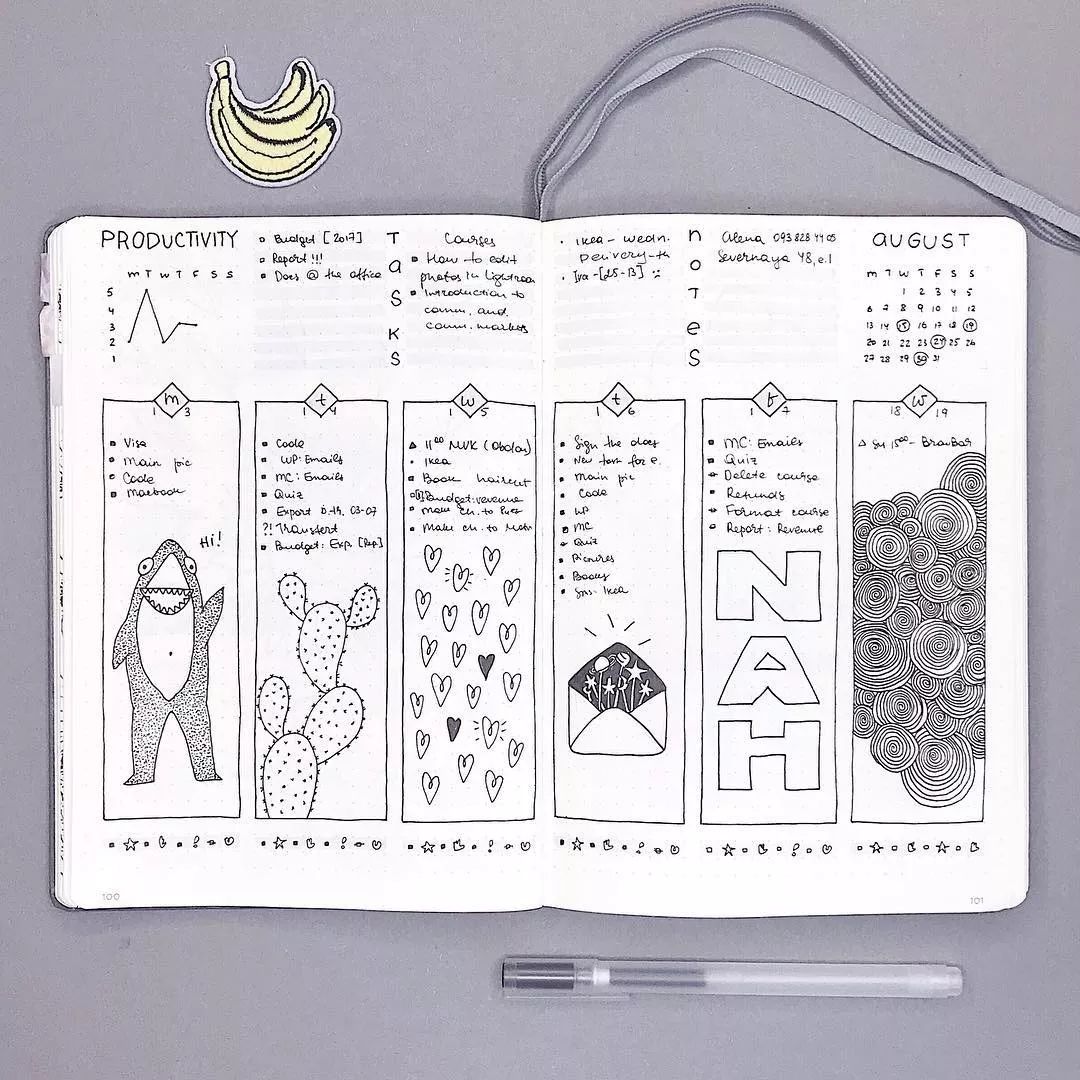 PRODUCTIVITY
M T W T F S S
5
4
3
2
1
Budget [2017]
Report !!!
Docs @ the office
TASKS
Courses
How to edit
photos in Lightroom
Introduction to
comm. and.
comm. markets
Ikea - wedn.
Delivery-th
Iva - [25-13]
NOTES
Alena 093 828 44 05
Severnaya 48, e.1
AUGUST
M T W T F S S
1 2 3 4 5
6 7 8 9 10 11 12
13 14 15 16 17 18 19
20 21 22 23 24 25 26
27 28 29 30 31
m
13
Visa
Main pic
Code
Macbook
Hi!
t
14
Code
WP: Emails
MC: Emails
Quiz
Export 03-07
?! Transfert
Budget: Exp. [Rep]
w
15
11:00 MVK
Ikea
Book haircut
Budget: revenue
Make ch. to
Make ch. to
t
16
Sign the docs
New task for e.
Main pic
Code
WP
MC
Quiz
Pictures
Books
sms: Ikea
f
17
MC: Emails
Quiz
Delete course
Refunds
Format course
Report: Revenue
NAH
w
18 19
Sat 15:00 - BrauBar
100
101